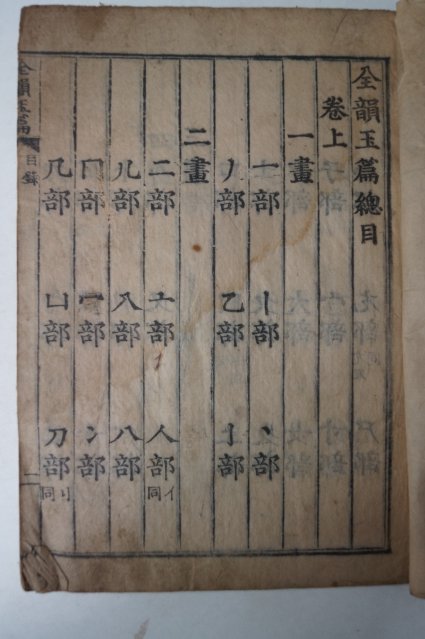 全韻玉篇總目
卷上
一畫
一部 丨部 丶部
丿部 乙部 亅部
二畫
二部 亠部 人部 亻同
儿部 入部 八部
冂部 冖部 冫部
几部 凵部 刀部 刂同
全韻玉篇 目錄 一